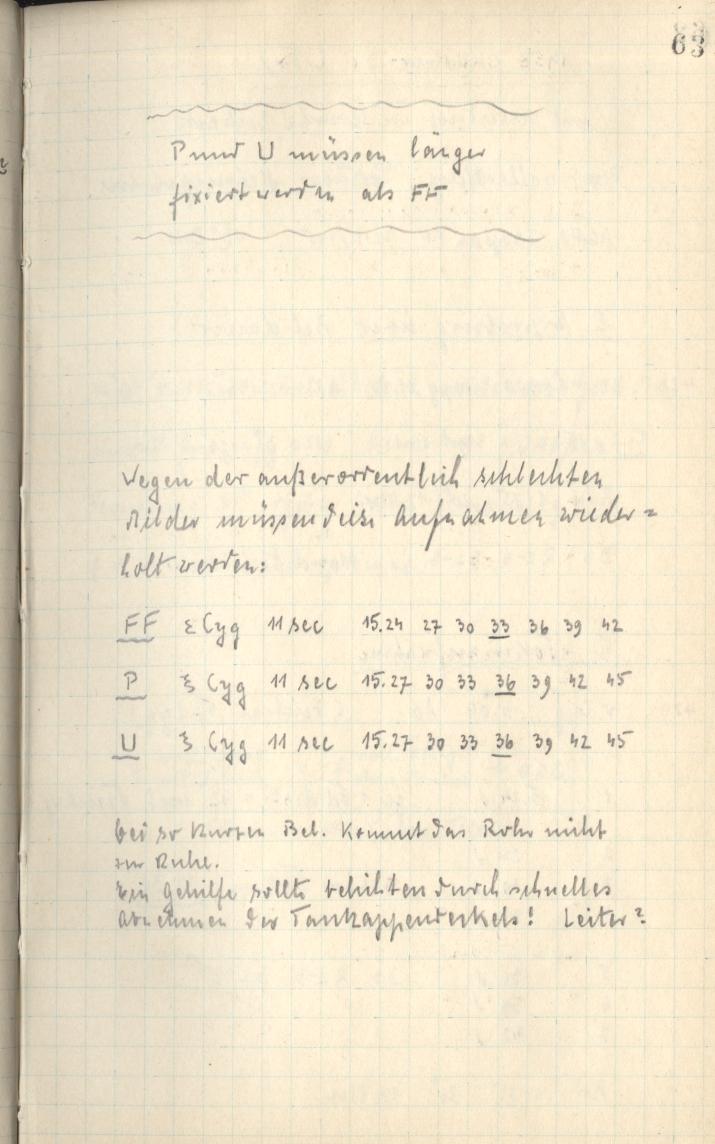 63
P und U müssen länger
fixiert werden als FF
Wegen der außerordentlich schlechten
Bilder müssen diese Aufnahmen wieder=
holt werden:
FF ξ Cyg 11 sec 15.24 27 30 33 36 39 42
P ξ Cyg 11 sec 15.27 30 33 36 39 42 45
U ξ Cyg 11 sec 15.27 30 33 36 39 42 45
bei so kurzen Bel. kommt das Rohr nicht
zur Ruhe.
Ein Gehilfe sollte belichten durch schnelles
abnehmen des! Leiter?